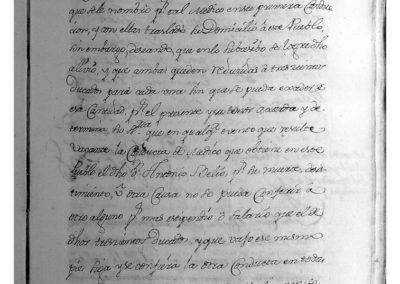 que se le nombró p.r tal Medico en su primera Condu
cion, y con ellas trasladó su Domicilio á este Pueblo,
sin embargo deseando, que en lo subcesibo se logre dho
alivio, y que ambas queden reducidas á trescientos
Ducados para cada una sin que se pueda exceder de
esa Cantidad, p.r el presente y su tenor acuerda y de
termina, dha que en qualq.r evento que resulte
vacante la Conducta de Medico que obtiene en este
Pueblo el dho D.n Antonio p.r su muerte, des
pedimiento, ú otra Causa no se pueda Conferir á
otro alguno p.r mas estipendio ó salario que el de
dhos trescientos Ducados, y que vajo ese mismo
pie siga y se confiera la otra Conducta en todos